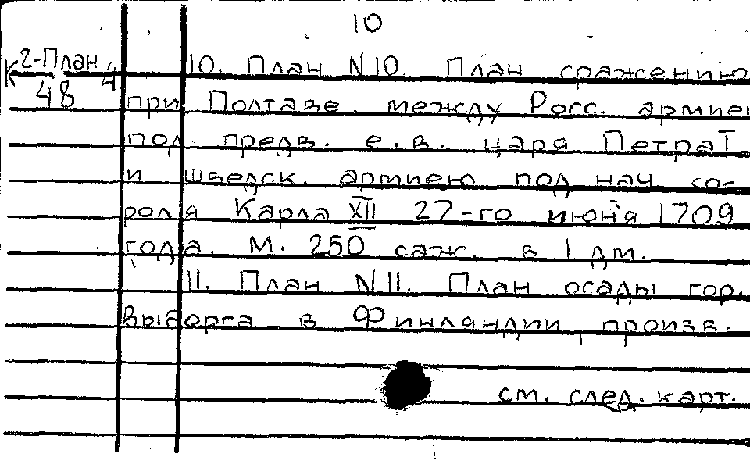 10
К 2-План 4
48
10. План N10. План сражению
при Полтаве между Росс. армией
под предв. е.в. царя Петра I
и шведск. армиею под нач. ко-
роля Карла XII 27-го июня 1709
года. М. 250 саж. в 1 дм.
11. План N11. План осады гор.
Выборга в Финляндии, произв.
см. след. карт.